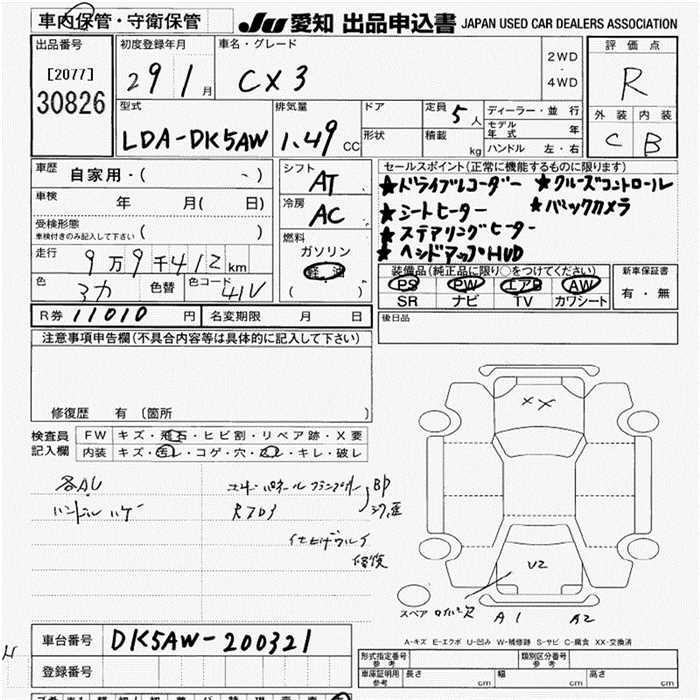 車内保管・守衛保管
JU 愛知 出品申込書 JAPAN USED CAR DEALERS ASSOCIATION
出品番号
[2077]
30826
初度登録年月
29 1月
車名・グレード
CX3
2WD
・
4WD
評価点
R
外装 内装
C B
型式
LDA-DK5AW
排気量
1.49 CC
ドア
形状
定員 5人
積載 kg
ディーラー・並行
モデル年式 年
ハンドル 左・右
車歴
自家用・( )
車検 年 月( 日)
受検形態
車検付きのみ記入して下さい ( )
走行
9万9千412km
色
3カ
色替
色コード
41V
シフト
AT
冷房
AC
燃料
ガソリン
軽油
( )
セールスポイント(正常に機能するものに限ります)
★ドライブレコーダー ★クルーズコントロール
★シートヒーター ★バックカメラ
★ステアリングヒーター
★ヘッドアップHUD
装備品(純正品に限り○をつけてください)
PS PW エアB AW
SR ナビ TV カワシート
新車保証書
有・無
R券 11010 円
名変期限 月 日
後日品
注意事項申告欄(不具合内容等は具体的に記入して下さい)
修復歴 有 (箇所 )
検査員
記入欄
FW キズ・飛石・ヒビ割・リペア跡・X要
内装 キズ・汚レ・コゲ・穴・スレ・キレ・破レ
各AU
ハンドル ハゲ
BP
仕上げワルイ
修復
XX
U2
スペア
A1 A2
A-キズ E-エクボ U-凹み W-補修跡 S-サビ C-腐食 XX-交換済
車台番号
DK5AW-200321
登録番号
形式指定番号
参考
類別区分番号
参考
車庫証明用
参考
長さ cm 幅 cm 高さ cm